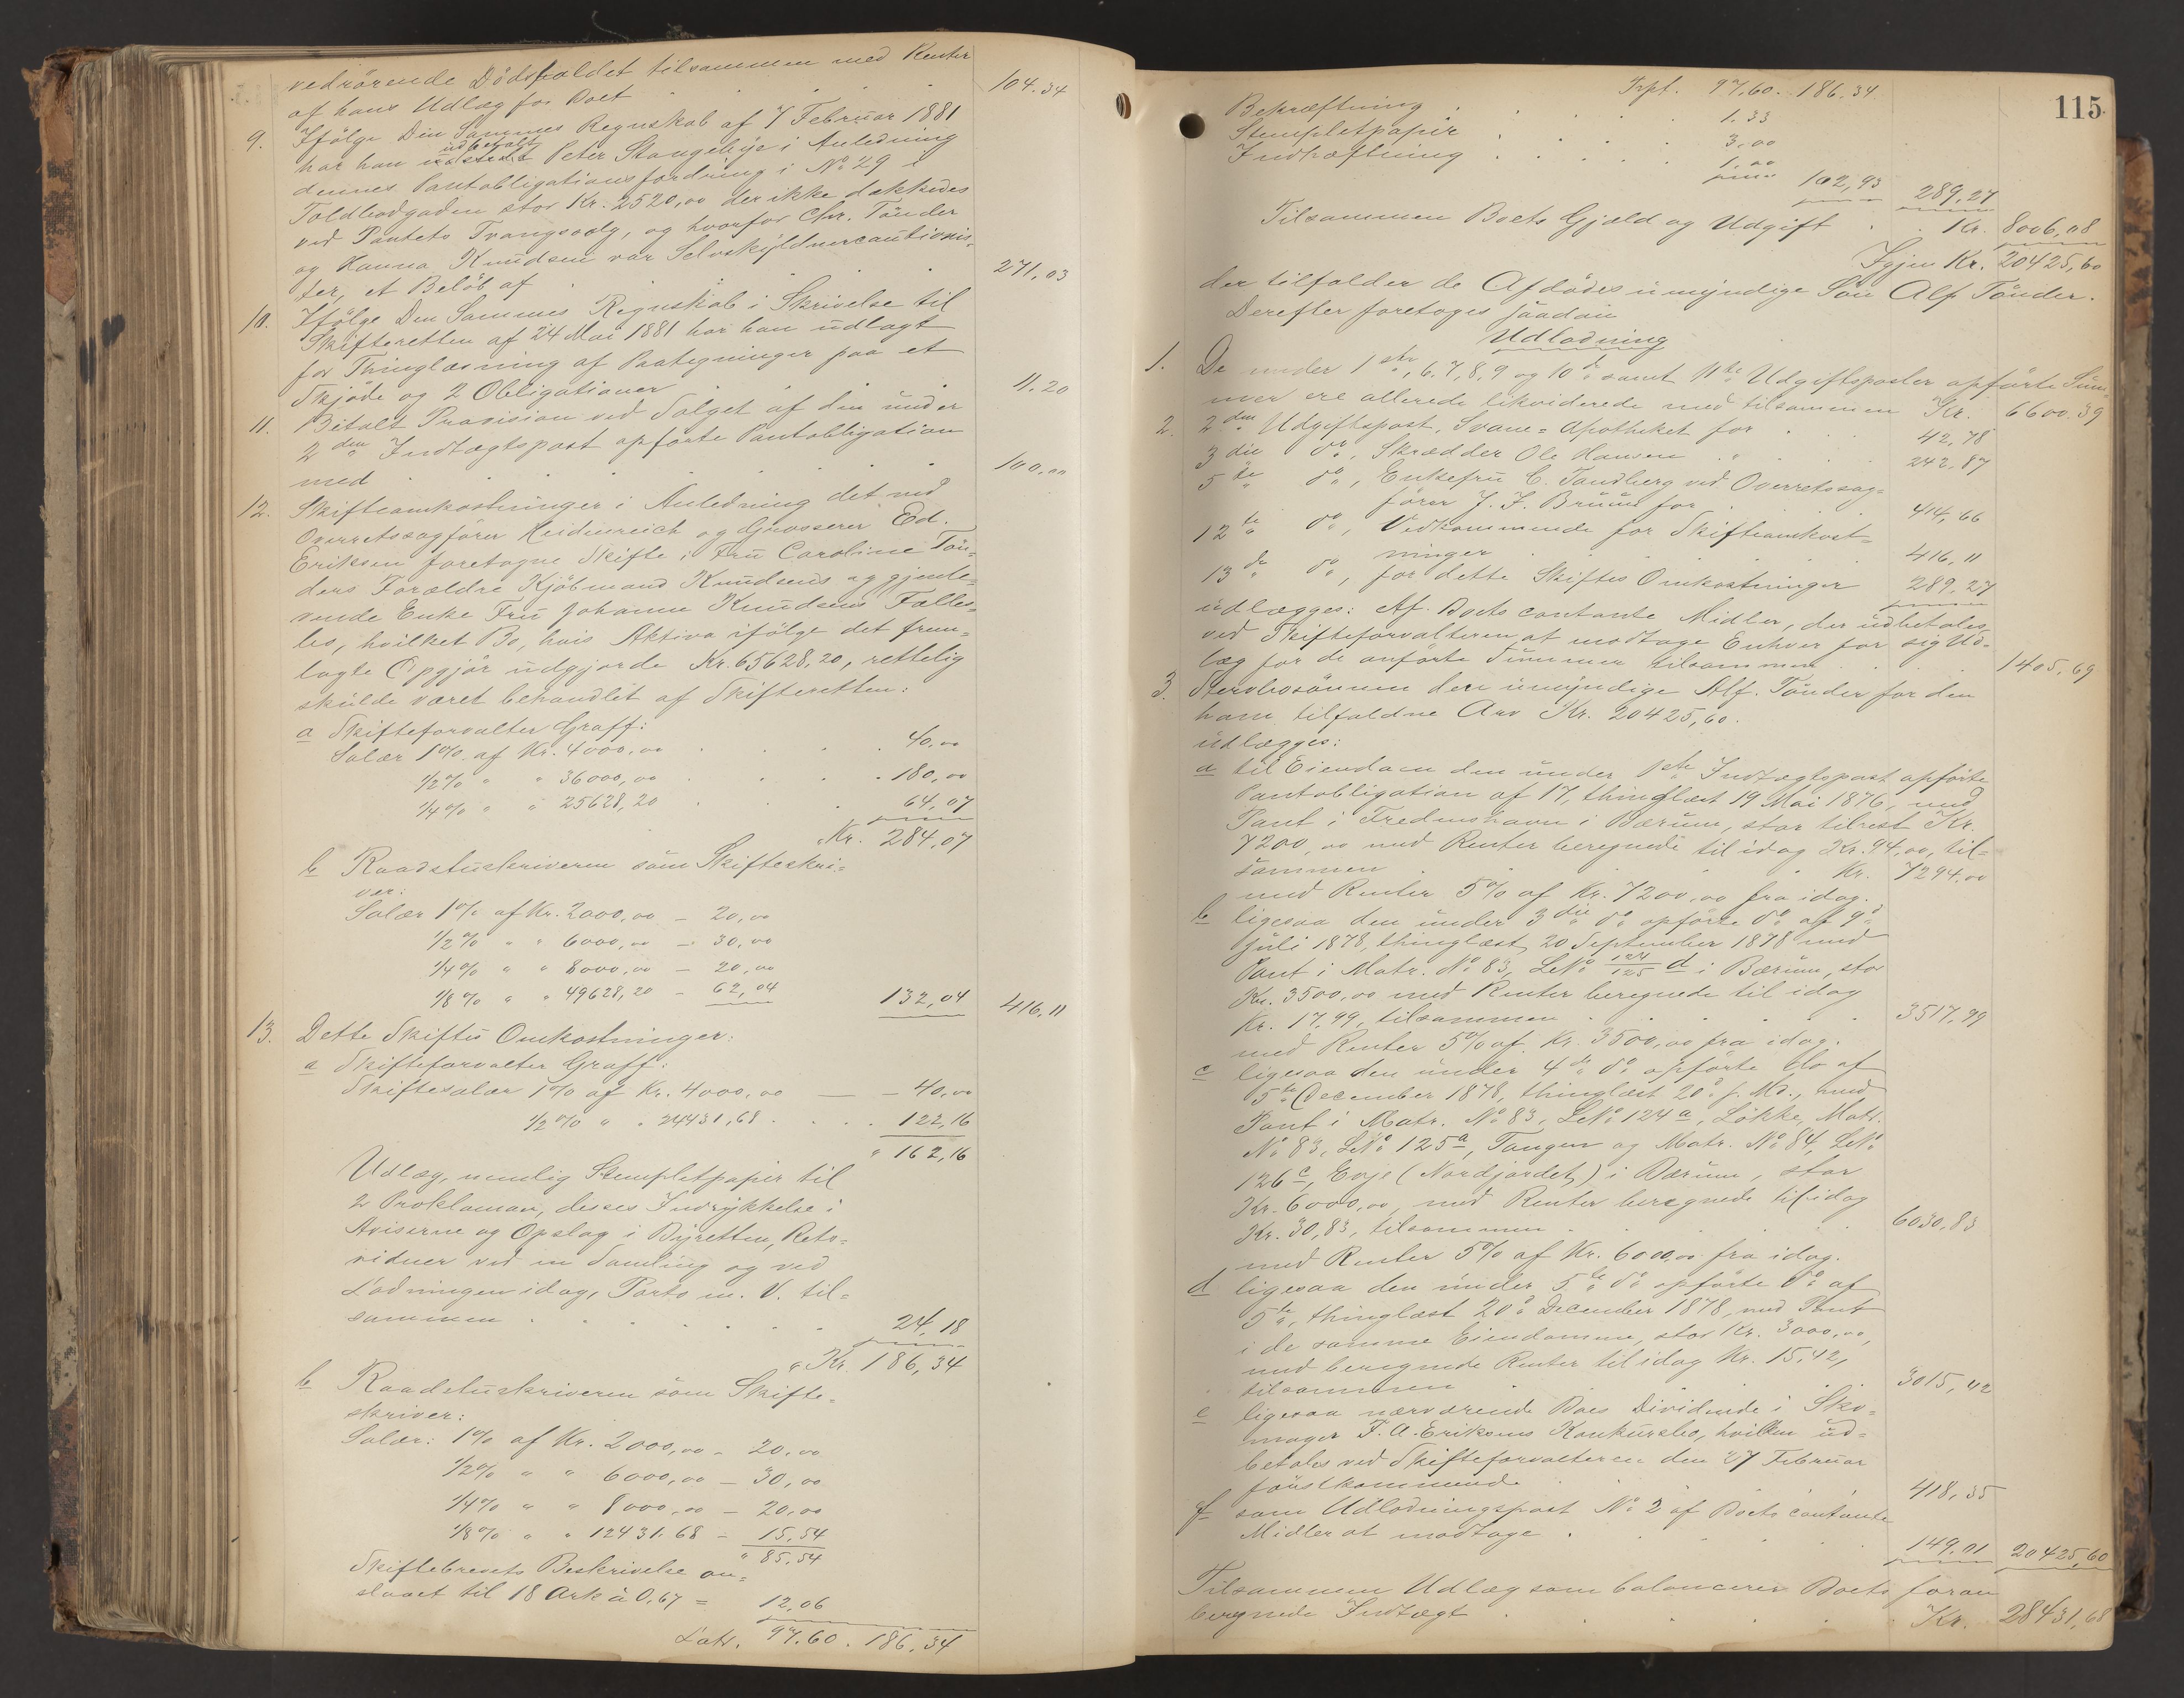 vedrörende Dödsfaldet tilsammen med Renter
af hans Udlæg for Boet . . . 104.34
9. Ifölge Den Sammes Regnskab af 7 Februar 1881
har han udbetalt Peter Stangebye i Anledning
dennes Pantobligationsfordring i No 29 i
Toldbodgaden stor Kr. 2520,00 der ikke dækkedes
ved Pantets Tvangssalg, og hvorfor Chr. Tönder
og Hanna Knudsen var Selvskyldnercautionis-
ter, et Belöb af . . . 271.03
10. Ifölge Den Sammes Regnskab i Skrivelse til
Skifteretten af 24 Mai 1881 har han udlagt
for Thinglæsning af Paategninger paa et
Skjöde og 2 Obligationer . . . 11.20
11. Betalt Provision ved Salget af den under
2den Indtægtspost opförte Pantobligation
med . . . 100,00
12. Skifteomkostninger i Anledning det ved
Overretssagförer Heidenreich og Grosserer Ed.
Eriksen foretagne Skifte i Fru Caroline Tön-
ders Forældre Kjöbmand Knudsens og gjenle-
vende Enke Fru Johanne Knudsens Fælles-
bo, hvilket Bo, hvis Aktiva ifölge det frem-
lagte Opgjör udgjorde Kr. 65628,20, rettelig
skulde været behandlet af Skifteretten:
a Skifteforvalter Graff:
Salær 1% af Kr. 4000,00 . . . 40,00
1/2% " " 36000,00 . . . 180,00
1/4% " " 25628,20 . . . 64,07
Kr. 284,07
b Raadstuskriveren som Skifteskri-
ver:
Salær 1% af Kr. 2000,00 – 20,00
1/2% " " 6000,00 – 30,00
1/4% " " 8000,00 – 20,00
1/8% " " 49628,20 – 62,04 132,04 416,11
13. Dette Skiftes Omkostninger:
a Skifteforvalter Graff:
Skiftesalær 1% af Kr. 4000,00 — – 40,00
1/2% " " 24431,68 . . . 122,16
" 162,16
Udlæg, nemlig Stempletpapir til
2 Proklamaer, desses Indrykkelse i
Aviserne og Opslag i Byretten, Rets-
vidner ved en Samling og ved
Lodningen idag, Porto m. V. til-
sammen . . . 24,18
" Kr. 186,34
b Raadstuskriveren som Skifte-
skriver:
Salær: 1% af Kr. 2000,00 – 20,00
1/2% " " 6000,00 – 30,00
1/4% " " 8000,00 – 20,00
1/8% " " 12431.68 – 15.54
" 85.54
Skiftebrevets Beskrivelse an-
slaaet til 18 Ark à 0,67 = 12,06
Lats. 97.60. 186,34
115
Trpt. 97,60. 186,34
Bekræftning . . . 1.33
Stempletpapir . . . 3,00
Indhæftning . . . 1,00
102,93 289,27
Tilsammen Boets Gjæld og Udgift . . Kr. 8006,08
Igjen Kr. 20425,60
der tilfalder de Afdödes umyndige Sön Alf Tönder.
Derefter foretoges saadan
Udlodning
1. De under 1ste, 6, 7, 8, 9 og 10de samt 11te Udgiftsposter opförte Sum-
mer ere allerede likviderede med tilsammen Kr. 6600,39
2. 2den Udgiftspost, Svane-Apotheket for . . 42,78
3die do, Skrædder Ole Hansen " . . 242,87
5te do, Enkefru C. Tandberg ved Overretssag-
förer J. F. Bruun for . . 414,66
12te do, Vedkommende for Skifteomkost-
ninger . . . 416,11
13de do, for dette Skiftes Omkostninger 289,27
udlægges: Af Boets contante Midler, der udbetales
ved Skifteforvalteren at modtage Enhver for sig Ud-
læg for de anförte Summer tilsammen . . . 1405,69
3. Stervbosönnen den umyndige Alf. Tönder for den
ham tilfaldne Arv Kr. 20425,60.
udlægges:
a til Eiendom den under 1ste Indtægtspost opförte
Pantobligation af 17, thinglæst 19 Mai 1876, med
Pant i Fredenshavn i Bærum, stor tilrest Kr.
7200,00 med Renter beregnede til idag Kr. 94,00, til-
sammen . . . Kr. 7294.00
med Renter 5% af Kr. 7200,00 fra idag.
b ligesaa den under 3die do opförte do af 9de
Juli 1878, thinglæst 20 September 1878 med
Pant i Matr. No 83, LNo 124/125 d i Bærum, stor
Kr. 3500,00 med Renter beregnede til idag
Kr. 17,99, tilsammen . . . 3517,99
med Renter 5% af Kr. 3500,00 fra idag.
c ligesaa den under 4de do opförte do af
5te December 1878, thinglæst 20de s. Md., med
Pant i Matr. No 83, LNo 124 a, Lökke, Matr.
No 83, LNo 125 a, Tangen og Matr. No 84, LNo
126 c, Evje (Nordjordet) i Bærum, stor
Kr. 6000,00 med Renter beregnede til idag
Kr. 30,83, tilsammen . . . 6030,83
med Renter 5% af Kr. 6000,00 fra idag.
d ligesaa den under 5te do opförte do af
5te, thinglæst 20de December 1878, med Pant
i de samme Eiendomme, stor Kr. 3000,00,
med beregnede Renter til idag Kr. 15,42,
tilsammen . . . 3015,42
e ligesaa nærværende Boes Dividende i Sko-
mager F. A. Eriksens Konkursbo, hvilken ud-
betales ved Skifteforvalteren den 27 Februar
förstkommende . . . 418,35
f som Udlodningspost No 2 af Boets contante
Midler at modtage . . . 149,01 20425,60
Tilsammen Udlæg som balancerer Boets foran
beregnede Indtægt . . . Kr. 28431,68